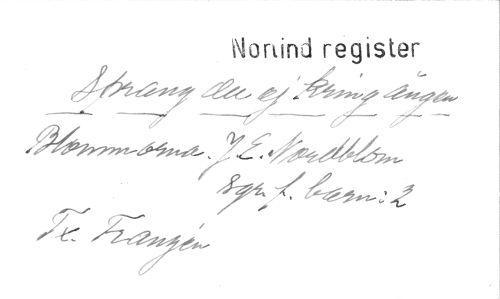 Nonind register
Sprang du ej kring ängen
Blommorna. J. E. Nordblom
Sgr f. barn: 2
Tx. Franzén